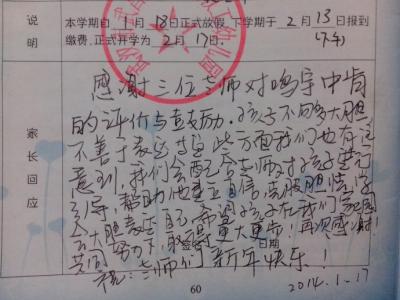 说明
本学期自 1 月 18 日正式放假，下学期于 2 月 13 日报到
缴费，正式开学为 2 月 17 日。
家长回应
感谢三位老师对鸣宇中肯
的评价与鼓励。孩子不够大胆，
不善于表达等这些方面我们也有注
意到，我们会配合老师对孩子进行
引导，帮助他建立自信，克服胆怯，学
会大胆表达自己。希望孩子在我们
共同努力下，取得更大更步！再次感谢！
日期
祝：老师们新年快乐！
2014.1.17
60